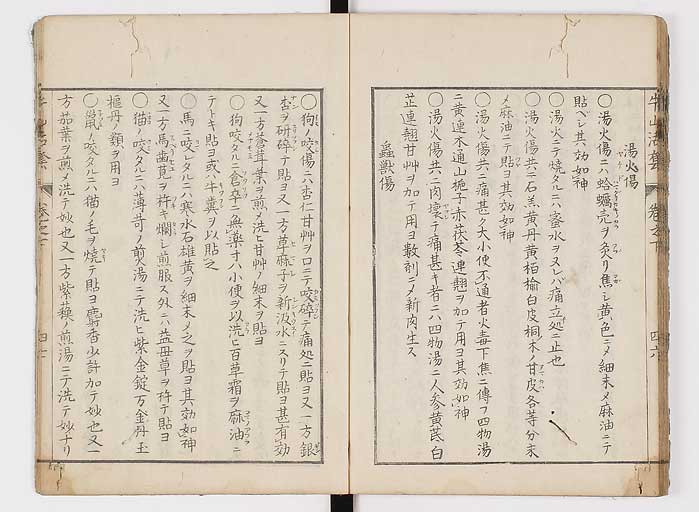 湯火傷
○湯火傷ニハ蛤蠣売ヲ炙リ焦シ黄色ニメ細末メ麻油ニテ
貼ベシ其効如神
○湯火ニテ焼タルニハ蜜水ヲヌレバ痛立処ニ止也
○湯火傷共ニ石羔黄丹黄栢楡白皮桐木ノ甘皮各等分末
メ麻油ニテ貼ヨ其効如神
○湯火傷共ニ痛甚ク大小便不通者火毒下焦ニ傳フ四物湯
ニ黄連木通山梔子赤茯苓連翹ヲ加テ用ヨ其効如神
○湯火傷共ニ肉壊テ痛甚キ者ニハ四物湯ニ人参黄芪白
芷連翹甘艸ヲ加テ用ヨ数剤ニメ新肉生ス
蟲獣傷
牛山活套 巻之下 四六
○狗ノ咬傷ニハ杏仁甘艸ヲ口ニテ咬碎テ痛処ニ貼ヨ又一方銀
杏ヲ研碎テ貼ヨ又一方草麻子ヲ新汲水ニスリテ貼ヨ甚有効
又一方蒼茸葉ヲ煎メ洗ヒ甘艸ノ細末ヲ貼ヨ
○狗咬タルニ倉卒ニ無薬寸ハ小便ヲ以洗ヒ百草霜ヲ麻油ニ
テトキ貼ヨ或ハ牛糞ヲ以貼之
○馬ニ咬レタルニハ寒水石雄黄ヲ細末メ之ヲ貼ヨ其効如神
又一方馬歯莧ヲ杵キ爛シ煎服ス外ニハ益母草ヲ杵テ貼ヨ
○猫ノ咬タルニハ薄苛ノ煎湯ニテ洗ヒ紫金錠万金丹玉
枢丹ノ類ヲ用ヨ
○鼠ノ咬タルニハ猫ノ毛ヲ焼テ貼ヨ麝香少許加テ妙也又一
方茄葉ヲ煎メ洗テ妙也又一方紫蘓ノ煎湯ニテ洗テ妙ナリ